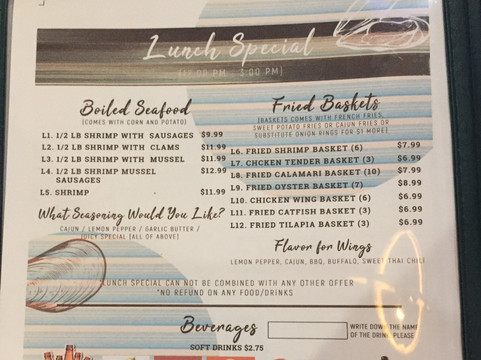 Lunch Special
(11:00 PM - 3:00 PM)
Boiled Seafood
(COMES WITH CORN AND POTATO)
L1. 1/2 LB SHRIMP WITH SAUSAGES $9.99
L2. 1/2 LB SHRIMP WITH CLAMS $11.99
L3. 1/2 LB SHRIMP WITH MUSSEL $11.99
L4. 1/2 LB SHRIMP MUSSEL $12.99
SAUSAGES
L5. SHRIMP $11.99
What Seasoning Would You Like?
CAJUN / LEMON PEPPER / GARLIC BUTTER /
JUICY SPECIAL (ALL OF ABOVE)
Fried Baskets
(BASKETS COMES WITH FRENCH FRIES,
SWEET POTATO FRIES OR CAJUN FRIES OR
SUBSTITUTE ONION RINGS FOR $1 MORE)
L6. FRIED SHRIMP BASKET (6) $7.99
L7. CHCKEN TENDER BASKET (3) $6.99
L8. FRIED CALAMARI BASKET (10) $7.99
L9. FRIED OYSTER BASKET (7) $8.99
L10. CHICKEN WING BASKET (6) $6.99
L11. FRIED CATFISH BASKET (3) $6.99
L12. FRIED TILAPIA BASKET (3) $6.99
Flavor for Wings
LEMON PEPPER, CAJUN, BBQ, BUFFALO, SWEET THAI CHILI
*LUNCH SPECIAL CAN NOT BE COMBINED WITH ANY OTHER OFFER
*NO REFUND ON ANY FOOD/DRINKS
Beverages
WRITE DOWN THE NAME
OF THE DRINK PLEASE
SOFT DRINKS $2.75